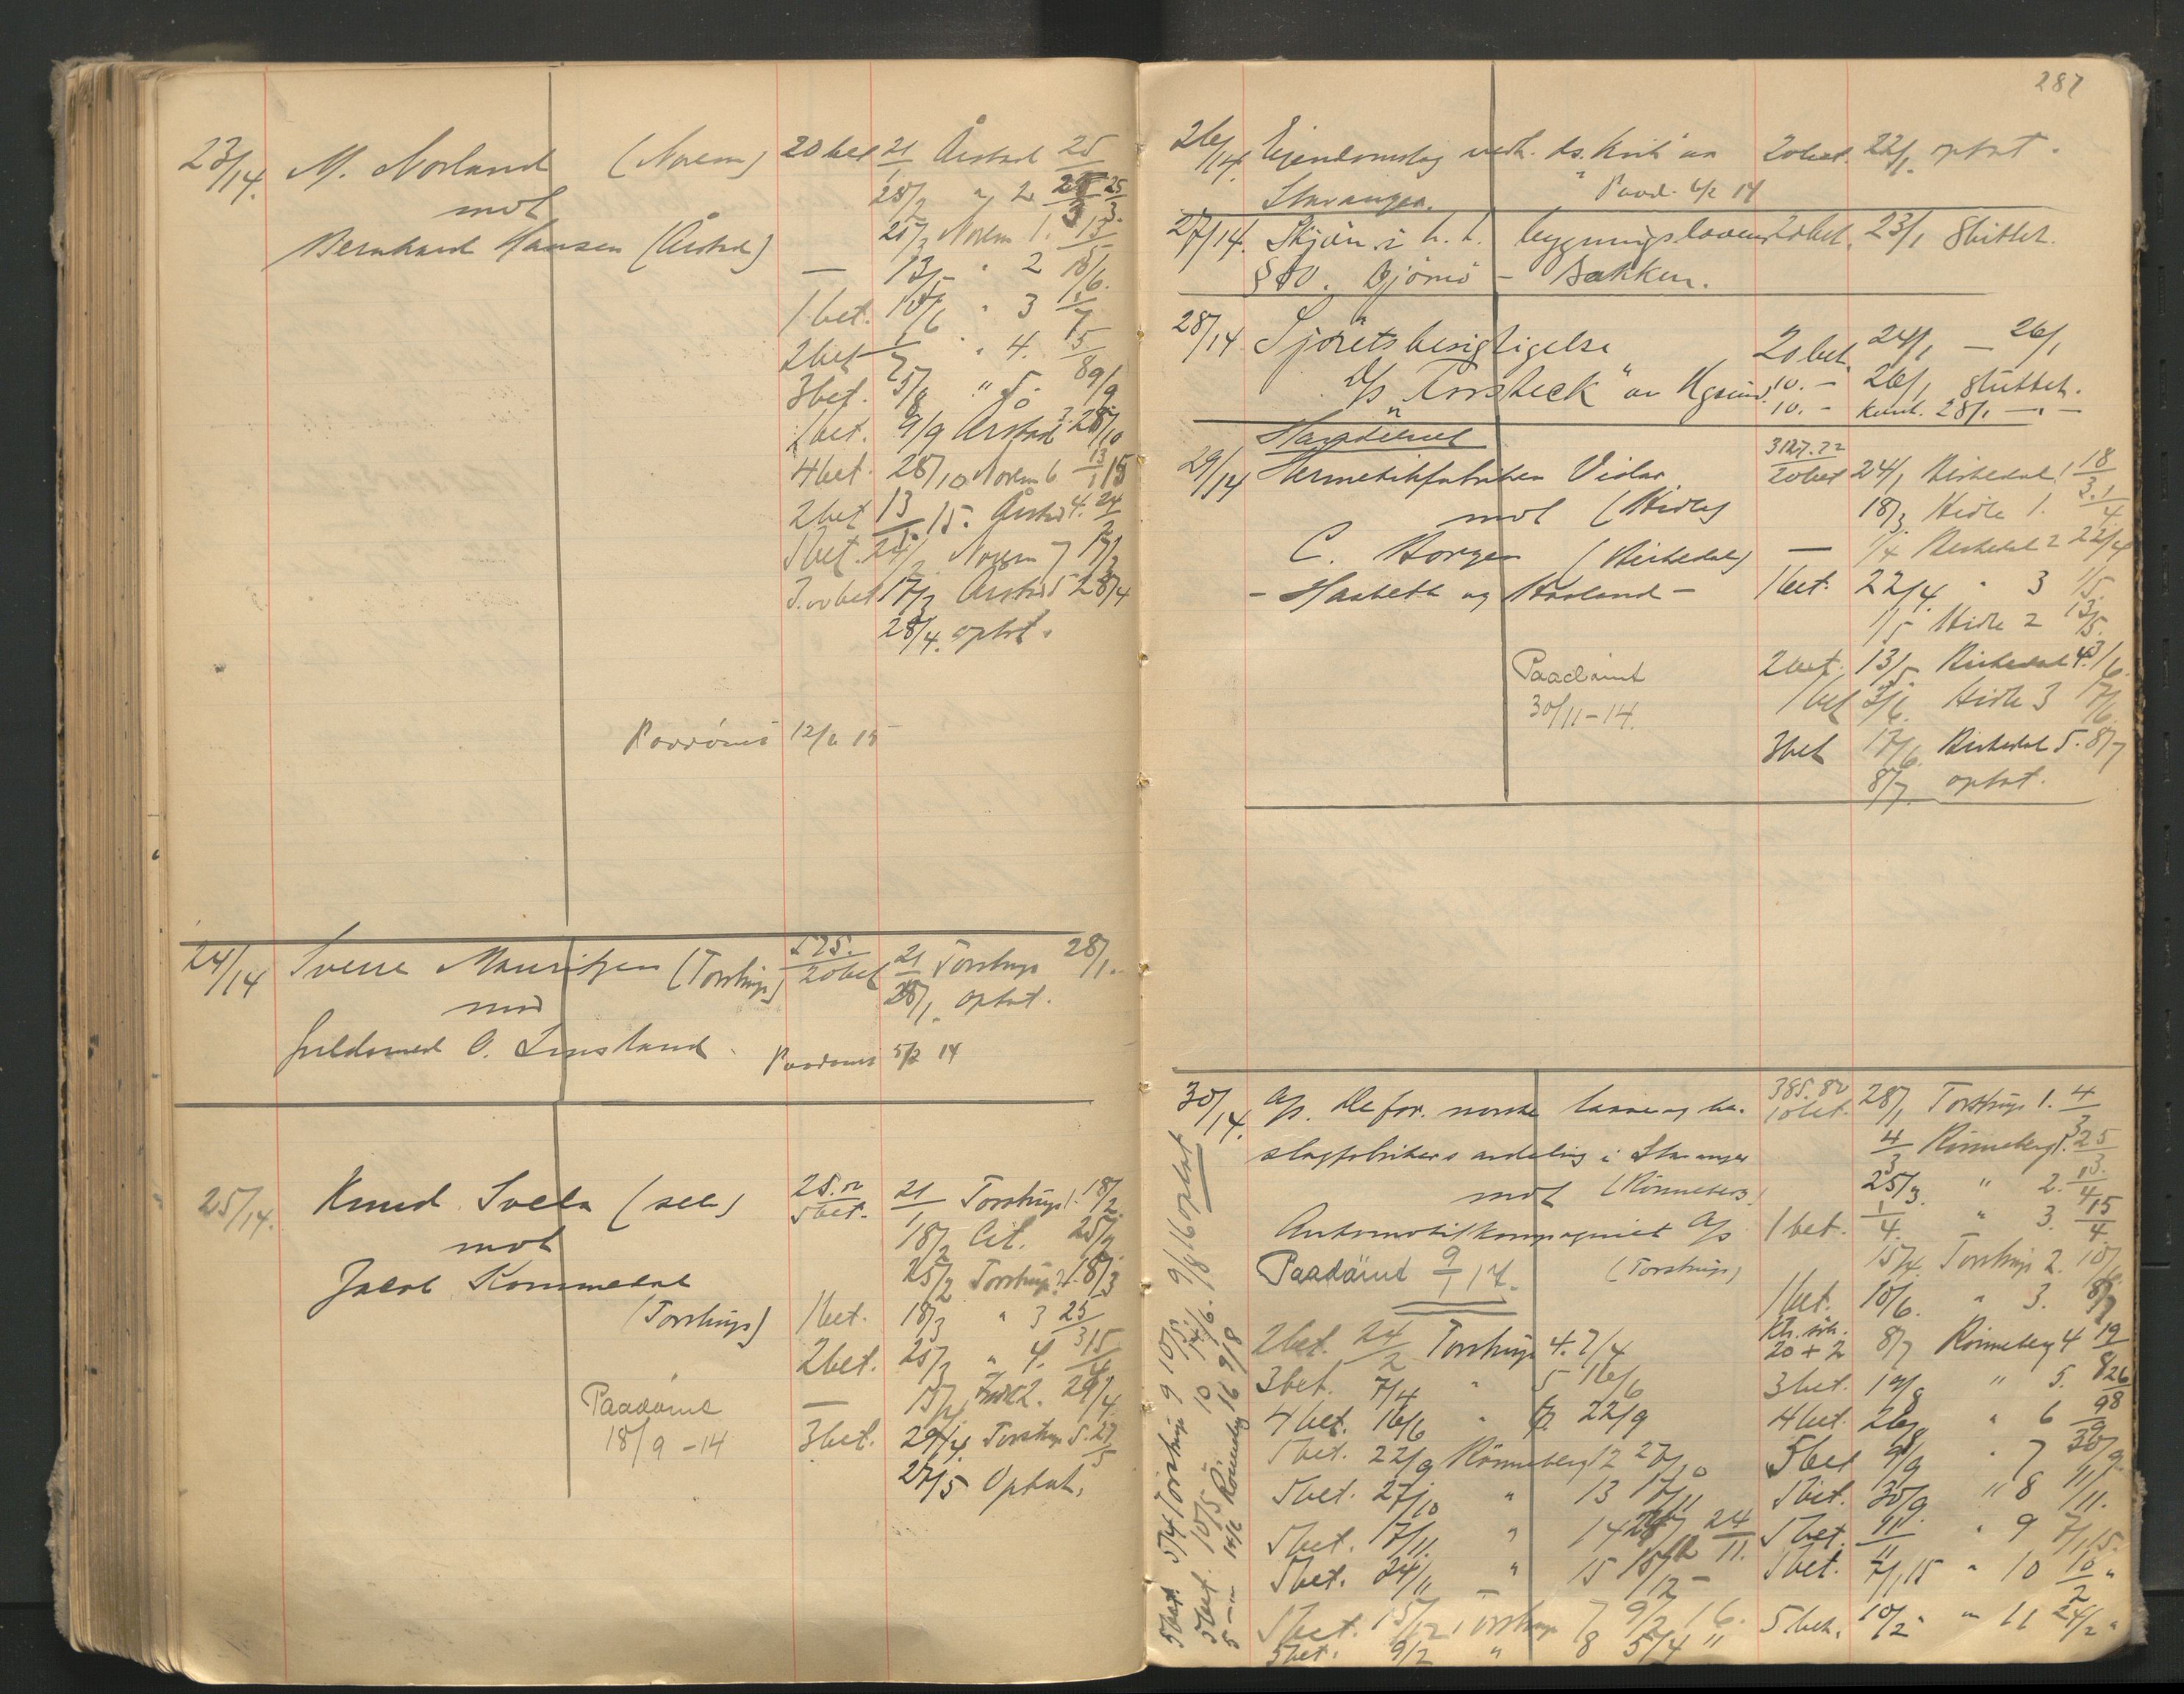 23/14. M. Norland (Norem) 20 bet 21/1 Årstad 25/2
mot 25/2 " 2 25/3
Bernhard Hansen (Årstad) 25/3 Norem 1. 13/5
— 13/5 " 2 10/6.
1 bet. 10/6 " 3 1/7
2 bet 1/7 " 4. 5/8
3 bet. 5/8 " 5. 9/9
1 bet. 9/9 Årstad 3. 28/10
4 bet. 28/10 Norem 6 13/1 15
2 bet 13/1 15. Årstad 4. 24/2
1 bet. 24/2 Norem 7 17/3
3.00 bet 17/3 Årstad 5 28/4
28/4. optat.
Paadömt 12/6 15
24/14 Sverre Mauritzen (Torstrup) 575.
20 bet 21/1 Torstrup 28/1.
mod 28/1. optat.
guldsmed O. Lunsland. Paadömt 5/2 14
25/14. Knud Svela (selv) 25.00
5 bet. 21/1 Torstrup 1. 18/2.
mot 18/2 Cit. 25/2
Jacob Kommedal 25/2 Torstrup 2. 18/3
(Torstrup) 1 bet. 18/3 " 3 25/3
2 bet. 25/3 " 4. 15/4
Paadömt — 15/4 2. 29/4
18/9 - 14 3 bet. 29/4 Torstrup 5. 27/5
27/5 Optat.
287
26/14. Eiendomstag vedk. 20 bet. 22/1. optat.
Stavanger. Paad. 6/2 14
27/14. Skjön i h. t. bygningsloven 20 bet. 23/1 sluttet.
§ 80. Bjömö - Bakken.
28/14 Sjöretsbesigtigelse 20 bet. 24/1 — 26/1
D/s "Torsbeck" av 10. — 26/1 sluttet.
10. - 28/1 — " —
29/14 Hermetikfabriken Vidar 3127.22
20 bet 24/1 Birkedal 1 18/3.
mot (Hidle) 18/3. Hidle 1. 1/4
C. Borgen (Birkedal) — 1/4 Birkedal 2 22/4
- Haabeth og Haaland - 1 bet. 22/4. " 3 1/5.
1/5 Hidle 2 13/5.
Paadömt 2 bet. 13/5. Birkedal 4. 3/6.
30/11 - 14. 1 bet 3/6. Hidle 3 17/6
3 bet 17/6 Birkedal 5. 8/7
8/7. optat.
30/14. A/s. De for. norske laase og be- 385.80
10 bet. 28/1 Torstrup 1. 4/3
slagfabrikers avdeling i Stavanger 4/3 Rönneberg 1. 25/3
mot (Rönneberg) 25/3. " 2. 1/4
Automobilkompagniet A/s 1 bet. 1/4. " 3. 15/4.
Paadömt 9/1 17. (Torstrup) 15/4. Torstrup 2. 10/6
1 bet. 10/6. " 3. 8/7
2 bet. 24/2 Torstrup 4. 7/4 20 + 2 8/7 Rönneberg 4 19/8
3 bet. 7/4 " 5 16/6 3 bet. 19/8 " 5. 26/8
4 bet. 16/6 " 22/9 4 bet. 26/8 " 6 9/9
5 bet. 22/9 Rönneberg 12 27/10 5 bet 9/9 " 7 30/9
5 bet. 27/10 " 13 17/11 5 bet. 30/9. " 8 11/11.
5 bet. 17/11. " 14 24/11. 5 bet. 11/11 " 9 7/1 15.
5 bet. 24/11 " 15 15/12 - 5 bet. 7/1 15 " 10 10/2 "
5 bet. 15/12 Torstrup 7 9/2 16. 5 bet. 10/2. " 11 24/2 "
5 bet. 9/2 " 8 5/4 "
5 bet. 5/4 Torstrup 9 10/5.
5 bet. 10/5 " 10 14/6.
5 — " 14/6 Rönneberg 16 9/8
9/8 16 optat